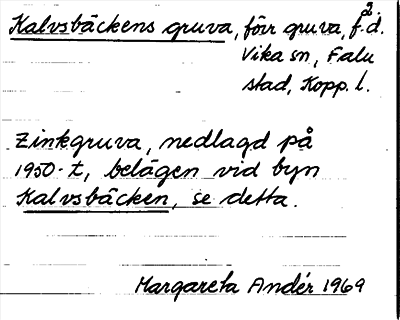 Kalvsbäckens gruva, förr gruva, f.d.
2.
Vika sn, Falu
stad, Kopp. l.
Zinkgruva, nedlagd på
1950-t, belägen vid byn
Kalvsbäcken, se detta.
Margareta Andér 1969